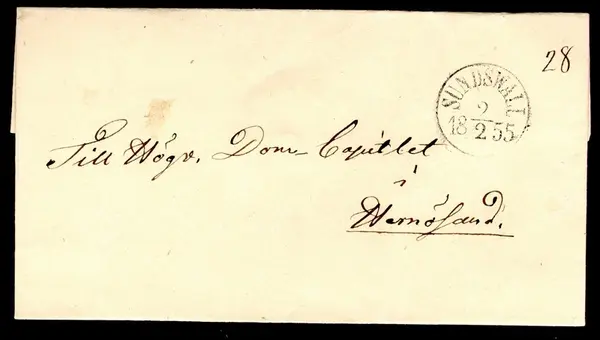 28
SUNDSWALL
2
18 2 55
Till Högv. Dom-Capitlet
i
Hernösand.